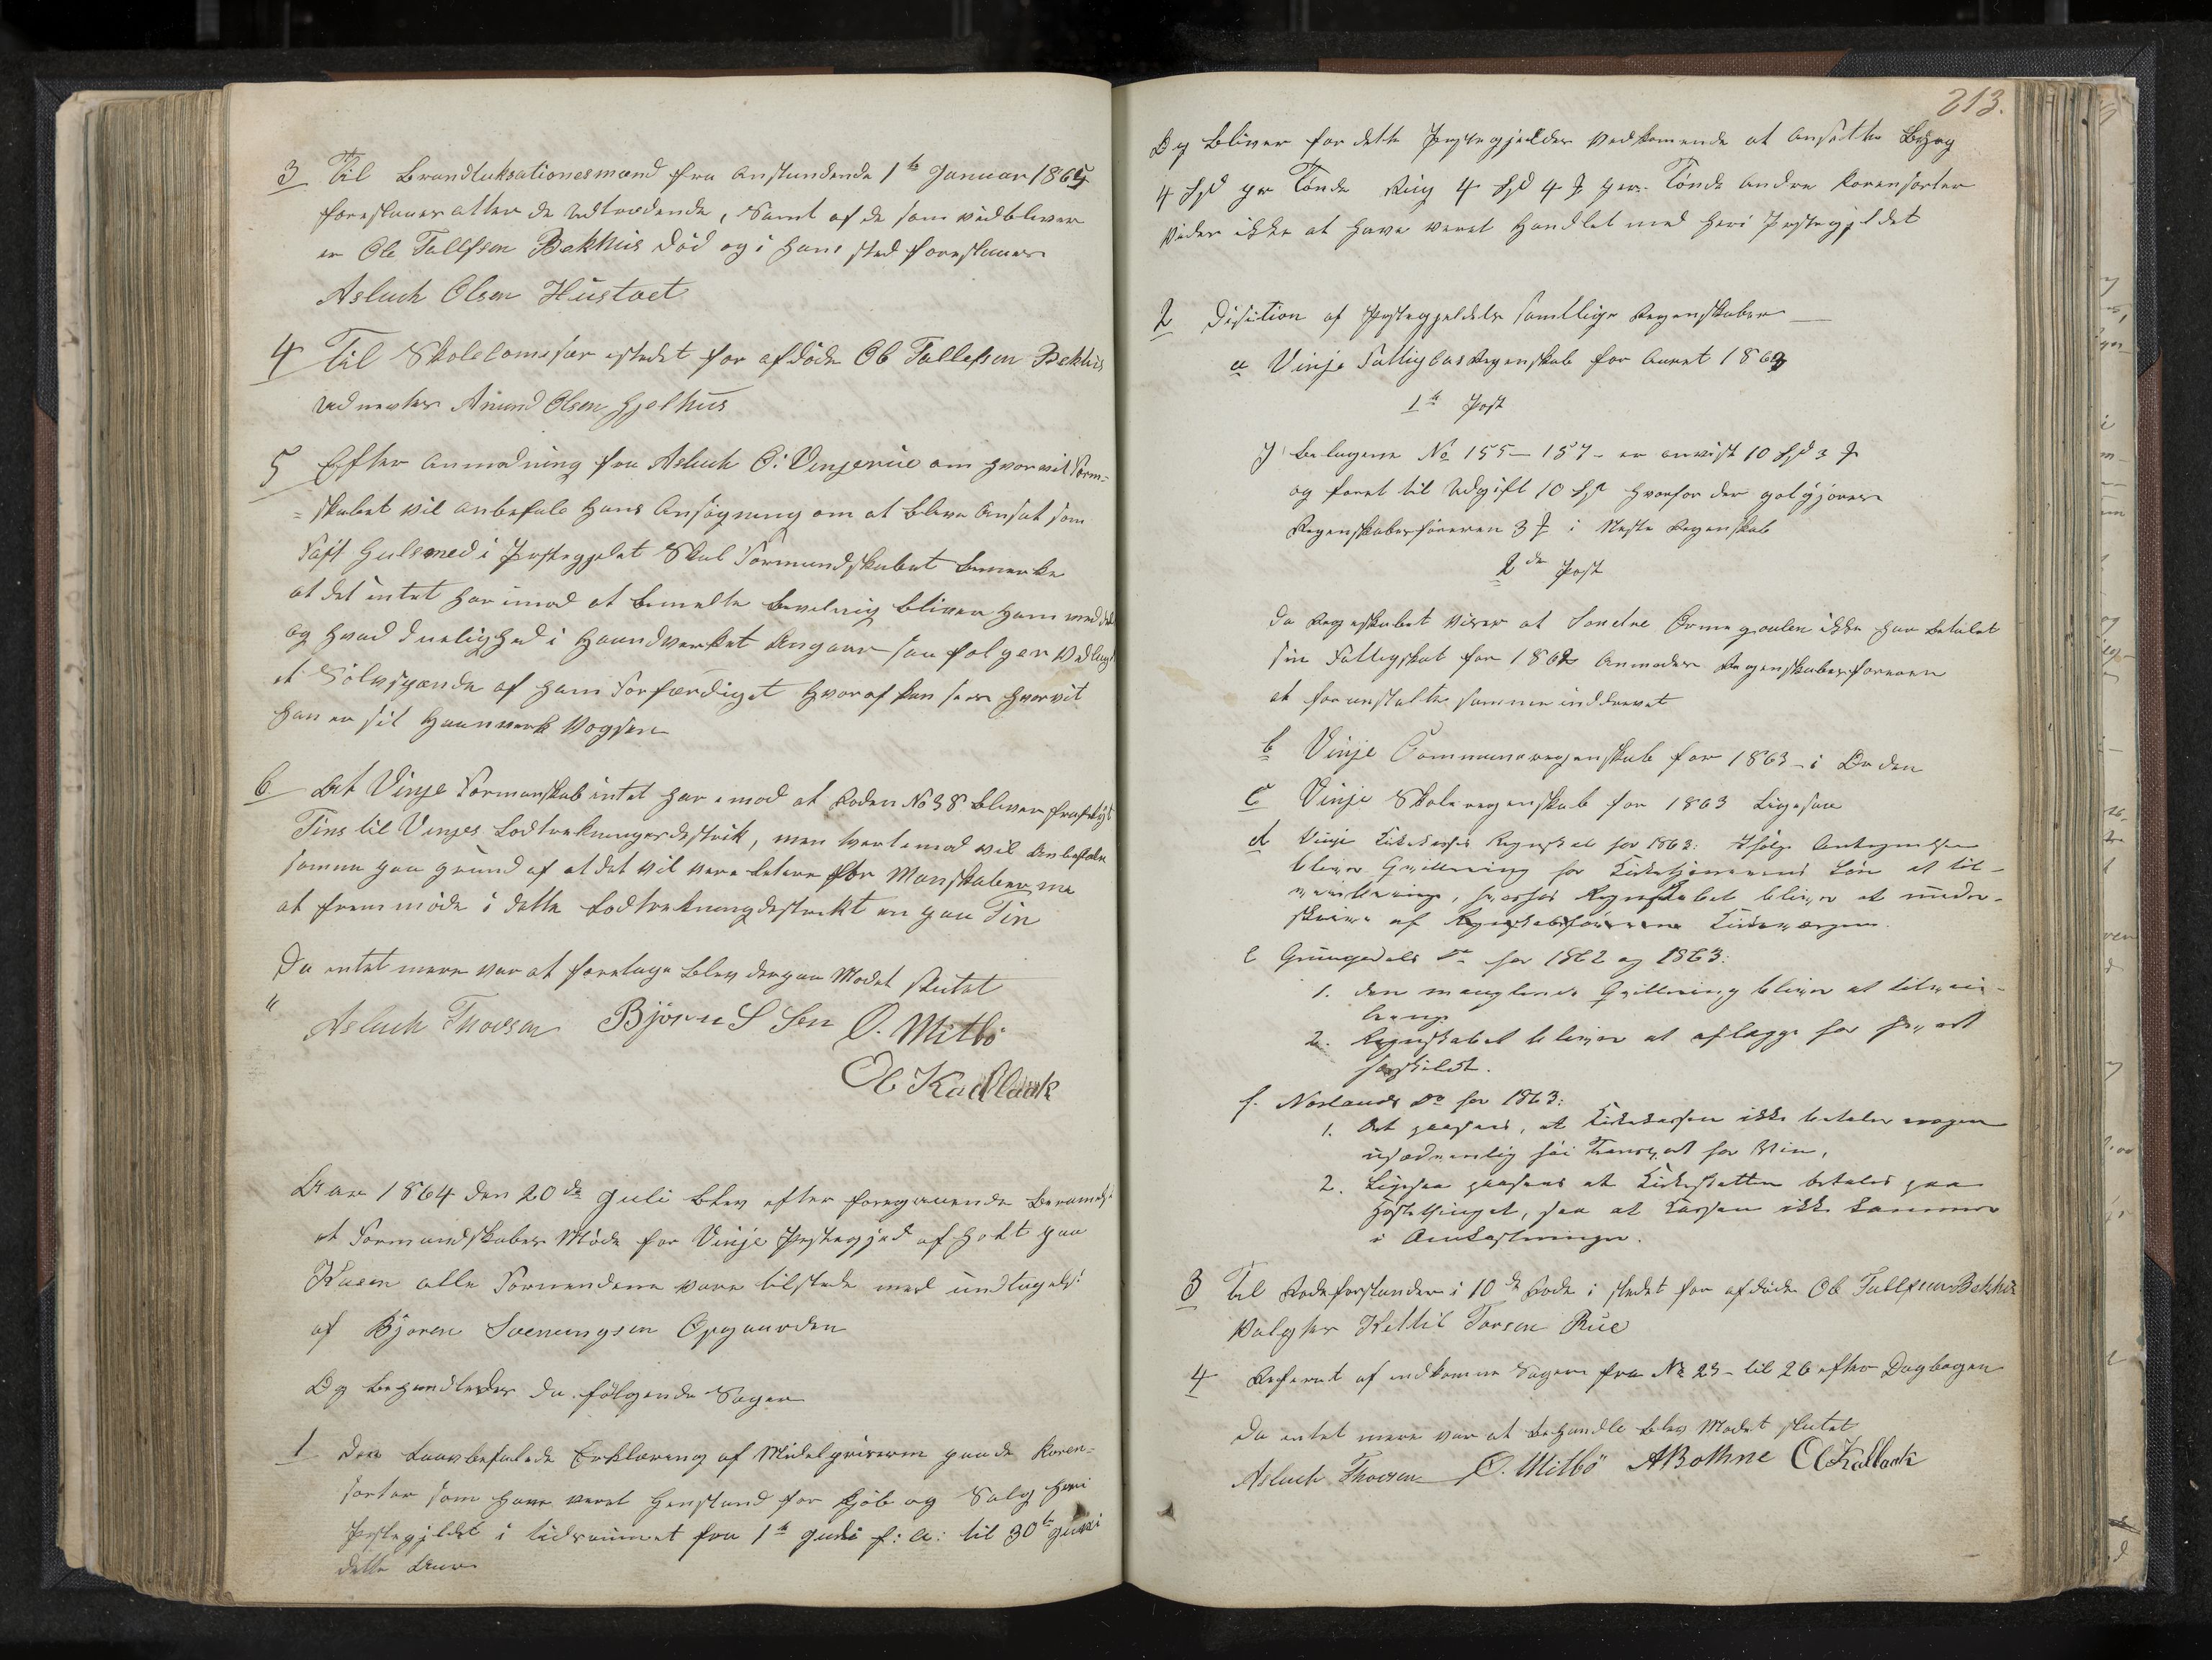 3 Til Brandtaksationesmænd fra Anstundende 1te Januar 1865
foreslaaes atter de Udtrædende, Samt af de som vedbliver
er Ole Tallefsen Bekhus død og i hans sted foreslaaes
Asluch Olsen Hustvet
4 Til Skolecomisær istedet for afdøde Ole Tallefsen Bekhus
udnevnes Anund Olsen Gjelhus
5 Efter anmodning fra Asluch O: Vinjerue om hvorvit Form=
=skabet vil anbefale hans Ansøgning om at blive Ansat som
Fast Gulsmed i Prestegjelet Skal Formandskabet bemerke
at det intet har imod at bemelte bevelnig bliver ham meddelt
og hvad duelighed i Haandverket Angaar saa følger Vedlagt
et Sølvspænde af ham Forfærdiget hvoraf kan sees hvorvit
han er sit Haanverk Voxsen
6 At Vinje Formanskab intet har imod at Roden No 38 bliver fraskilt
Tins til Vinjes Lodtrekningesdestrik, men tvertemod vil Anbefale
samme paa grund af at det vil være letere for Manskaberne
at fremmøde i dette Lodtrekningdestrekt en paa Tin
Da intet mere var at foretage blev derpaa Mødet slutet
Asluch Thorsen Bjørn S Sen O. Mitbø
Ol Kadlank
Aar 1864 den 20de Juli blev efter foregaaende Berammelse
et Formandskabes Møde for Vinje Prestegjeld afholt paa
Kaasen alle Formendene vare tilstede med undtagelse
af Bjøren Svenungsen Opgaarden
Og behandledes da følgende Sager
1 Den Laavbefalede Erklæring af Midelpriserne paa de Koren=
sorter som have veret Genstand for Kjøb og Salg heri
Prestegjeldet i tidsrummet fra 1te Juli f: A: til 30te Juni
dette Aar
213.
Og bliver for dette Prestegjelds Vedkomende at ansætte Byg
4 Spd pr Tønde Rug 4 Spd 4 ₰ per Tønde andre Korensorter
vides ikke at have veret Handlet med heri Prestegjeldet
2 Disition af Prestegjeldets samtlige Regenskaber
a Vinje Fattigkasregenskab for Aaret 1863
1te Post
I belagene No 155 – 157 – er anvist 10 Spd 3 ₰
og ført til Udgift 10 Spd hvorfor der godgjøres
Regenskabesføreren 3 ₰ i Neste Regenskab
2den Post
Da Regeskabet viser at Sondre Ormegraven ikke har betalet
sin Fattigskat for 1862 anmodes Regenskabesføreren
at foranstalte samme inddrevet
b Vinje Communeregenskab for 1863 – i Orden
c Vinje Skoleregenskab for 1863 Ligesaa
d Vinje Kirkekasses Regnskab for 1863: Ifølge Antegnelsen
bliver Qvittering for Kirketjenerens Løn at til-
veiebringe, hvorhos Regnskabet bliver at under-
skrive af Regnskabsføreren Kirkeværgen.
e Grungedals do for 1862 og 1863:
1. den manglende Qvittering bliver at tilveie-
bringe
2. Regnskabet bliver at aflægge for hvert
særskildt.
f. Neslands do for 1863:
1. At paasees, at Kirkekassen ikke betaler nogen
usædvanlig høi Transport for Vin,
2. Ligesaa paasees at Kirkeskatten betales paa
Høstethinget, saa at Kassen ikke kommer
i Omkostninger.
3 Til Rodeforstander i 10de Rode i stedet for afdøde Ole Tallefsen Bekhus
Valgtes Kettil Torsen Rue
4 Referat af indkomne Sager fra No 23 – til 26 efter Dagbogen
Da intet mere var at behandle blev Mødet slutet
Asluch Thorsen O. Mitbø ABothne Ol Kadlank